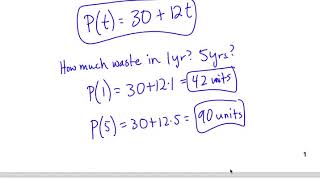 P(t) = 30 + 12t
How much waste in 1yr? 5yrs?
P(1) = 30+12·1 = 42 units
P(5) = 30+12·5 = 90 units
1